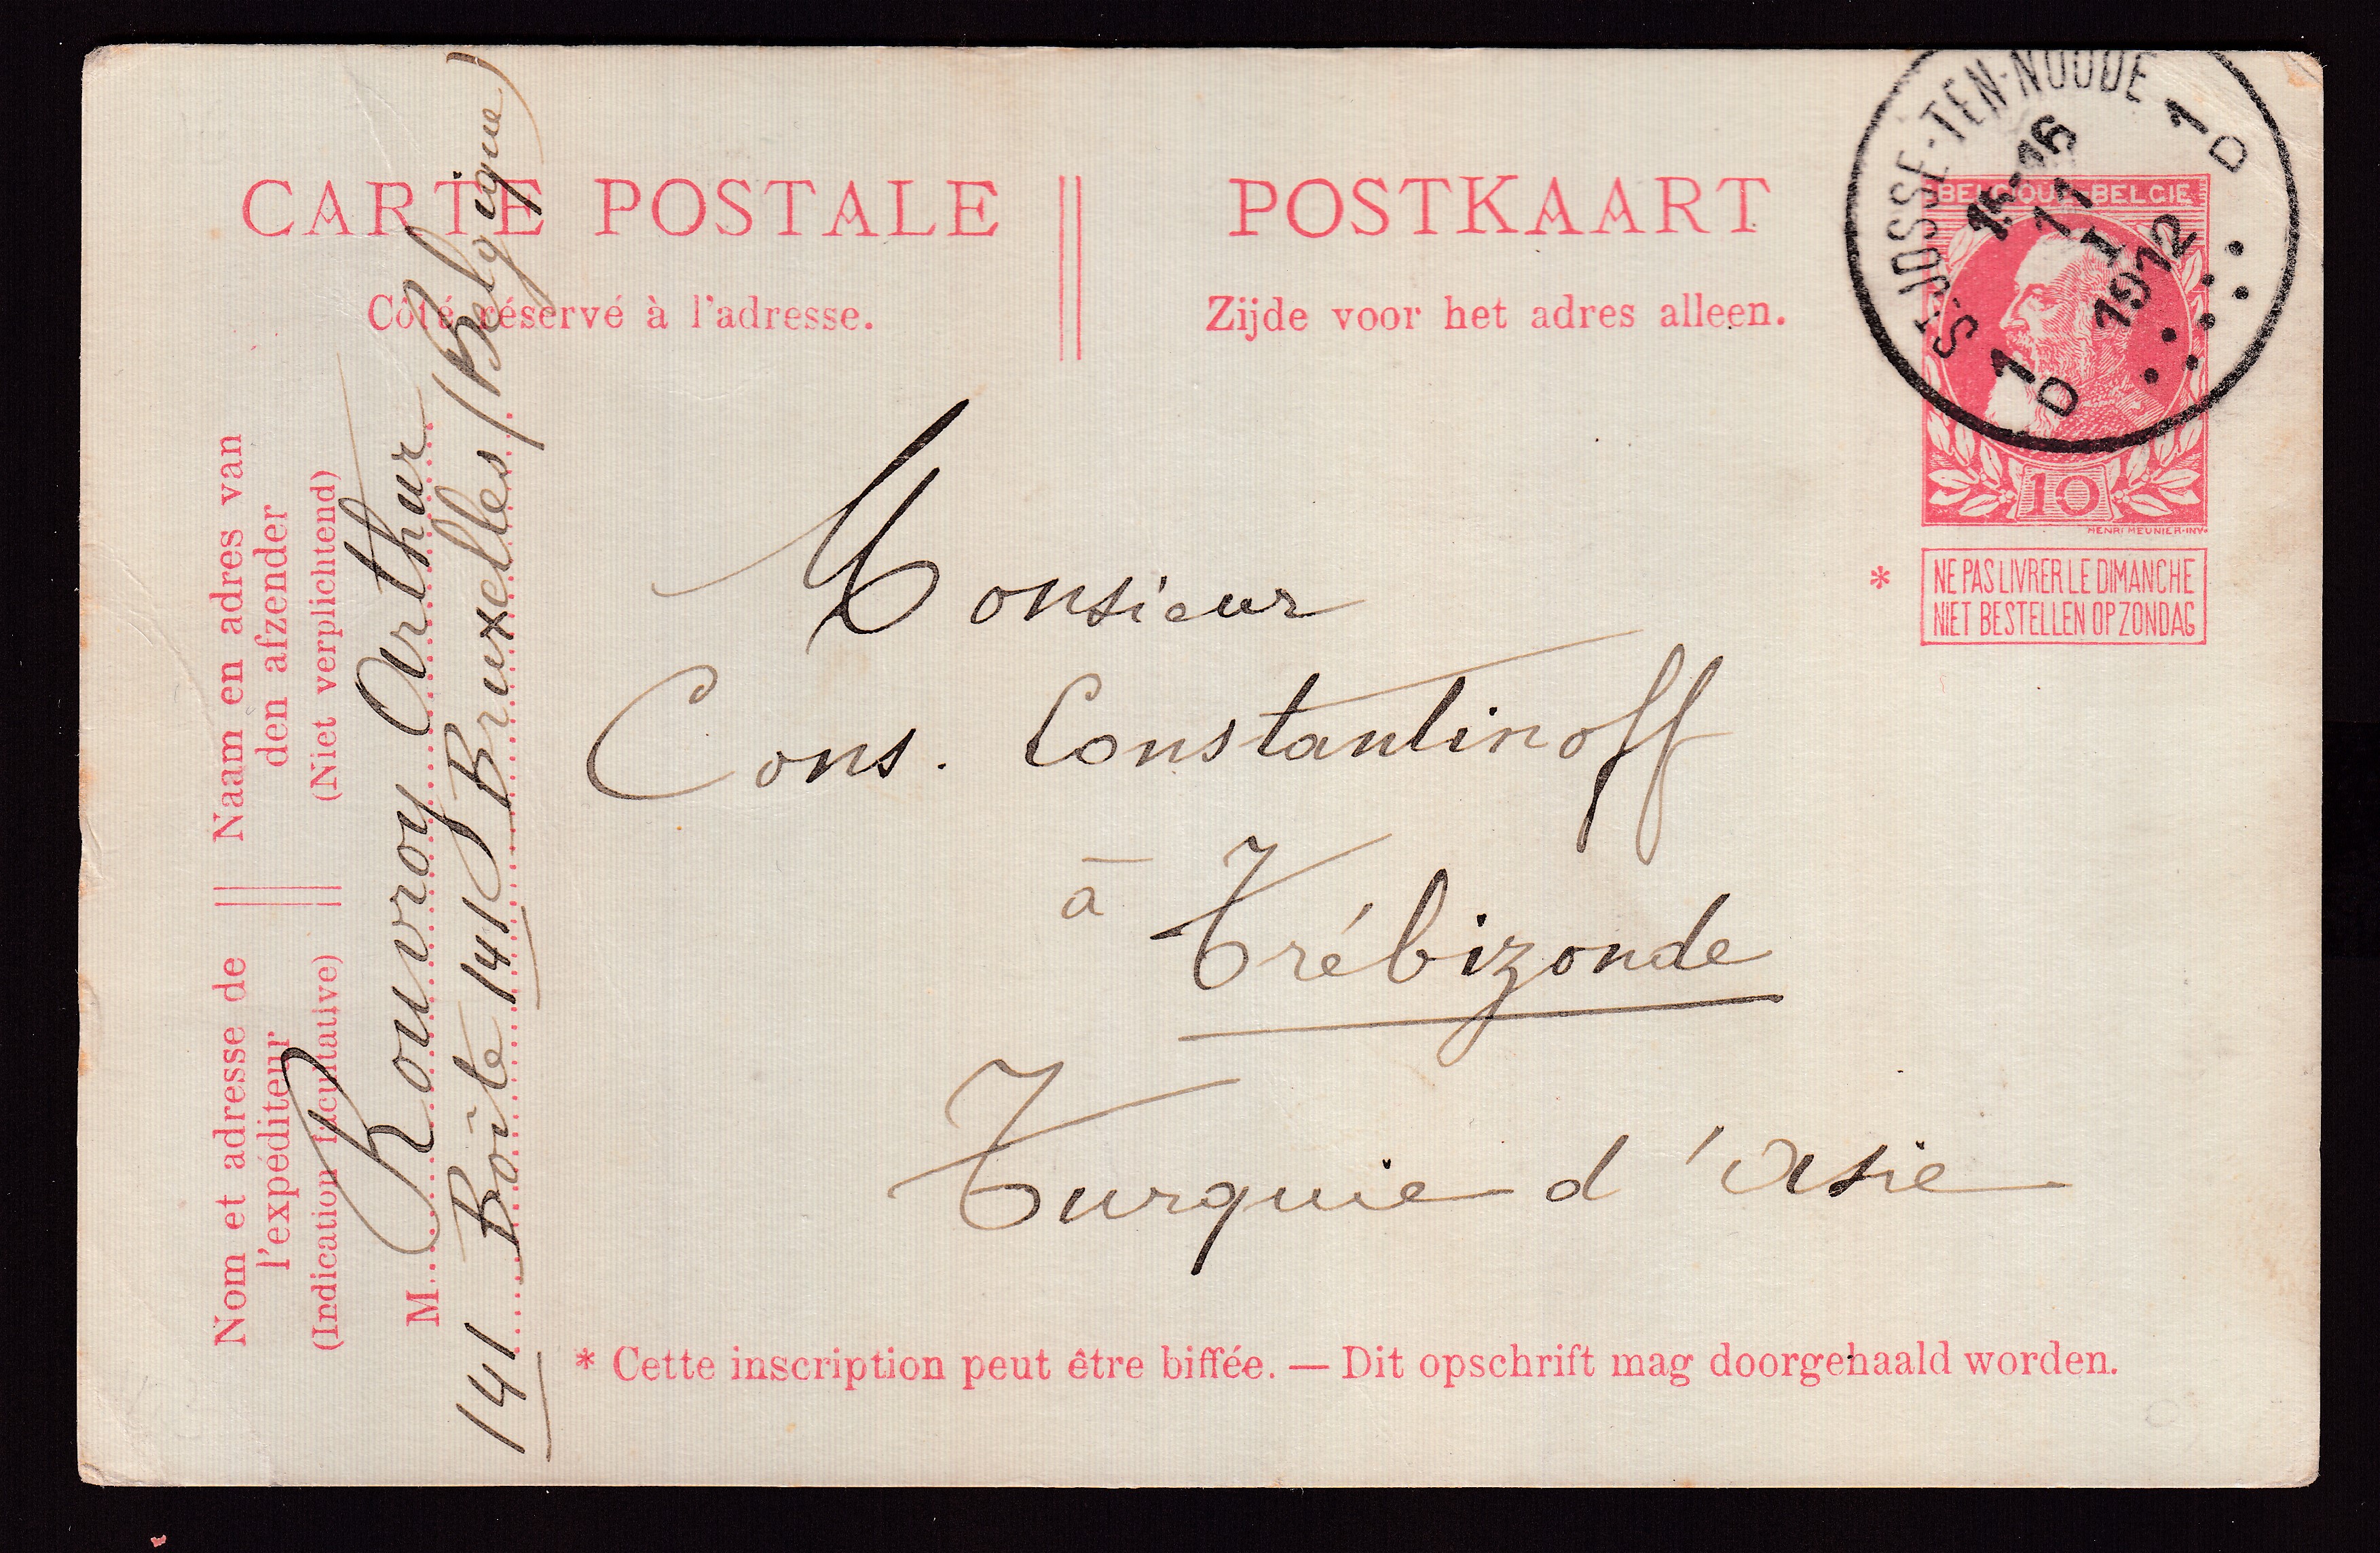 CARTE POSTALE
Côté réservé à l'adresse.
POSTKAART
Zijde voor het adres alleen.
ST-JOSSE-TEN-NOODE
15-16
11
I
1912
1
D
1
D
BELGIQUE-BELGIË
10
HENRI MEUNIER·INV·
* NE PAS LIVRER LE DIMANCHE
NIET BESTELLEN OP ZONDAG
Naam en adres van
den afzender
(Niet verplichtend)
Nom et adresse de
l'expéditeur
(Indication facultative)
M. Rouvroy Arthur
141 Boîte 141 Bruxelles (Belgique)
Monsieur
Cons. Constantinoff
à Trébizonde
Turquie d'Asie
* Cette inscription peut être biffée. — Dit opschrift mag doorgehaald worden.